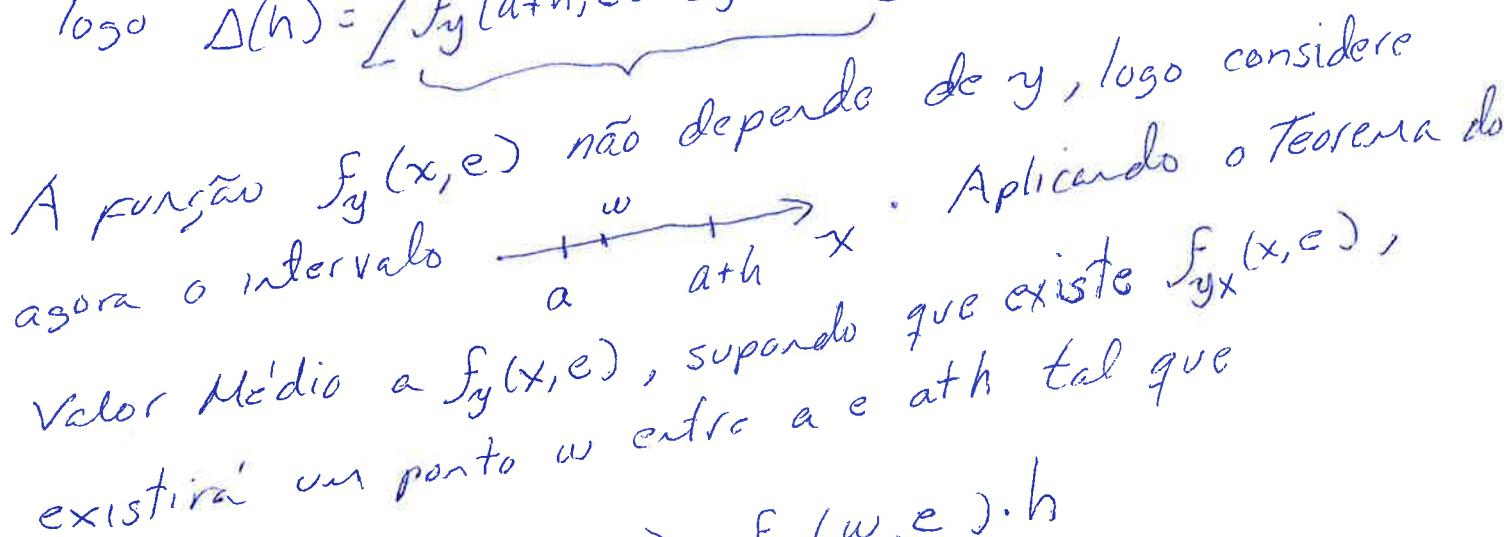 logo Δ(h) = [f_y(a+h, e)
A função f_y(x,e) não depende de y, logo considere
agora o intervalo a w a+h x . Aplicando o Teorema do
Valor Médio a f_y(x,e), supondo que existe f_yx(x,e),
existirá um ponto w entre a e a+h tal que
f (w, e).h